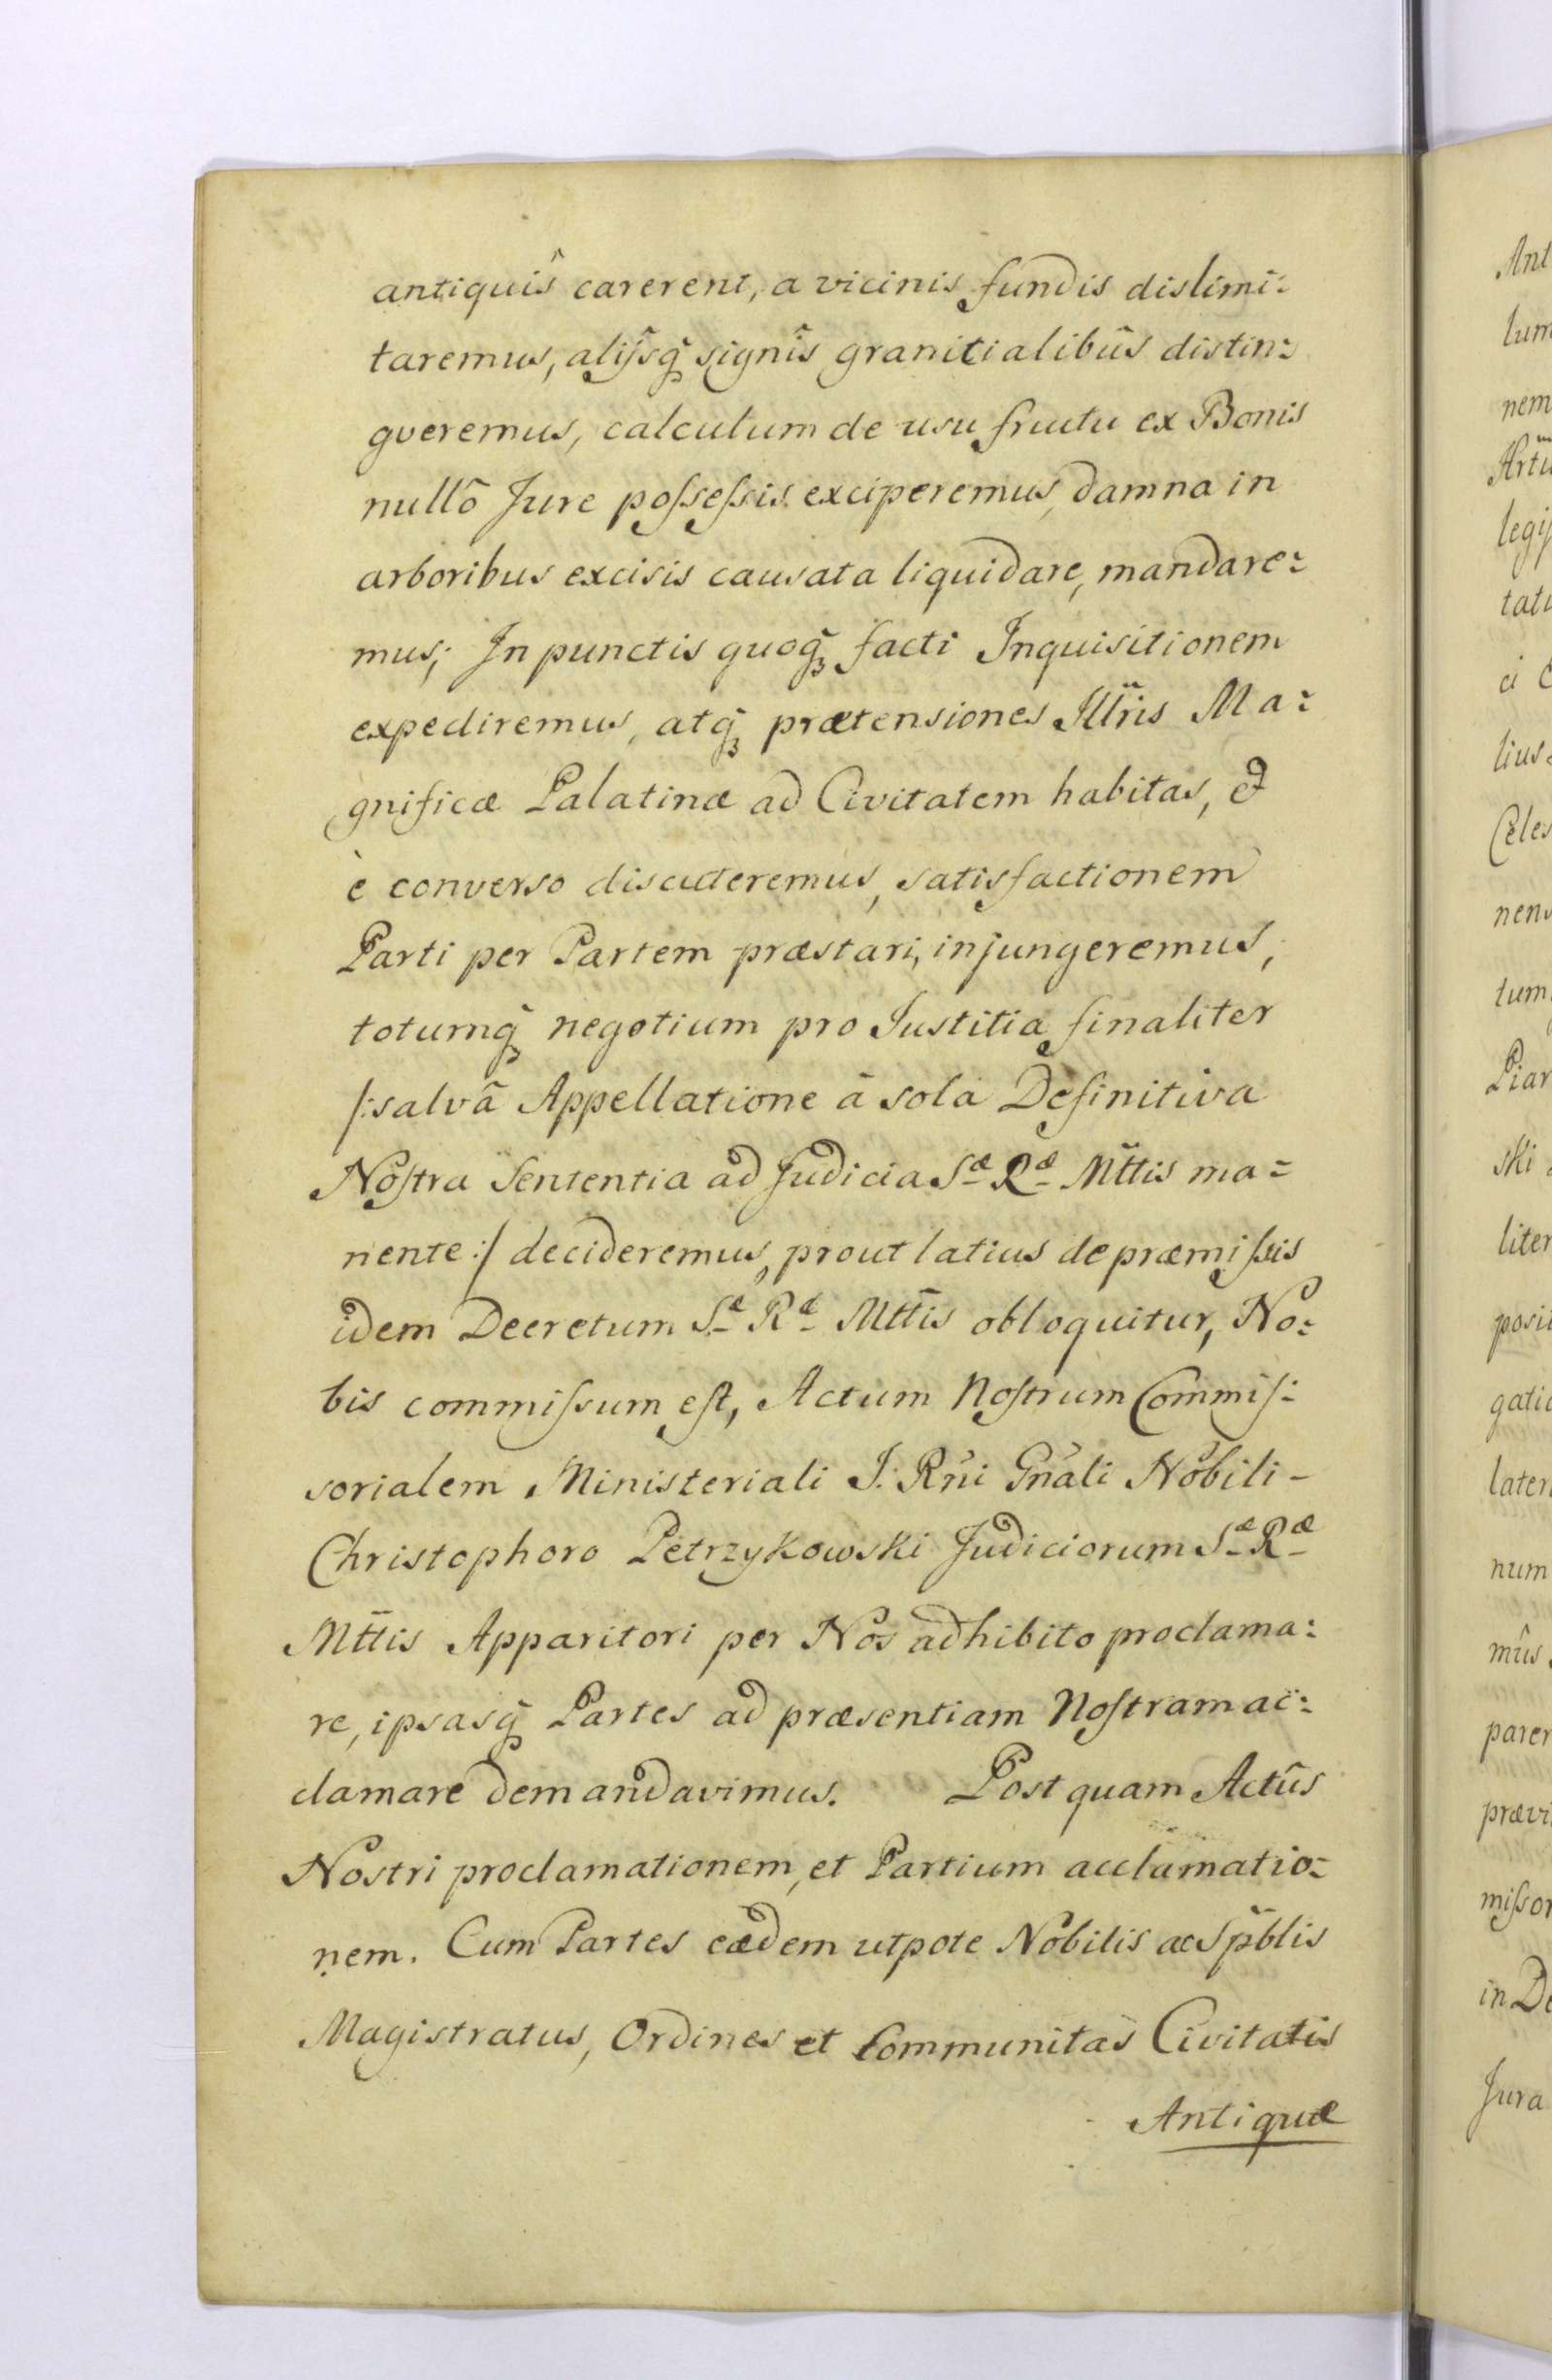 antiquîs carerent, a vicinis fundis dislimi:
taremus, alijsq̃ signîs granitialibûs distin:
gveremus, calculum de usu fructu ex Bonis
nullô Jure poſseſsis exciperemus, damna in
arboribus excisis causata liquidare, mandare:
mus; In punctis quoq̃ facti Inquisitionem
expediremus, atq̃ prætensiones Illr̃is Ma:
gnificæ Palatinæ ad Civitatem habitas, et
è converso discuteremus, satisfactionem
Parti per Partem præstari, injungeremus,
totumq̃ negotium pro Justitia finaliter
/:salvâ Appellatione à sola Definitiva
Noſtra Sententia ad Judicia Sæ Ræ Mttis ma=
nente:/ decideremus, prout latius de præmiſsis
idem Decretum Sæ Ræ Mttis obloquitur, No:
bis commiſsum eſt, Actum Noſtrum Commiſ:
sorialem Ministeriali J: Rñi Gñali Nobili-
Christophoro Petrzykowski Judiciorum Sæ Ræ
Mttis Apparitori per Nos adhibito proclama:
re, ipsasq̃ Partes ad præsentiam Noſtram ac:
clamare demandavimus. Post quam Actûs
Nostri proclamationem, et Partium acclamatio:
nem. Cum Partes eædem utpote Nobilis ac Sp̃blis
Magistratus, Ordines et Communitas Civitatis
Antiquæ
Ant
lum
nem
legiſ
tatu
ci
lius
Celes
nens
tum
Piar
ski
liter
posi
gati
later
num
mûs
parer
prævi
miſsor
in De
Jura